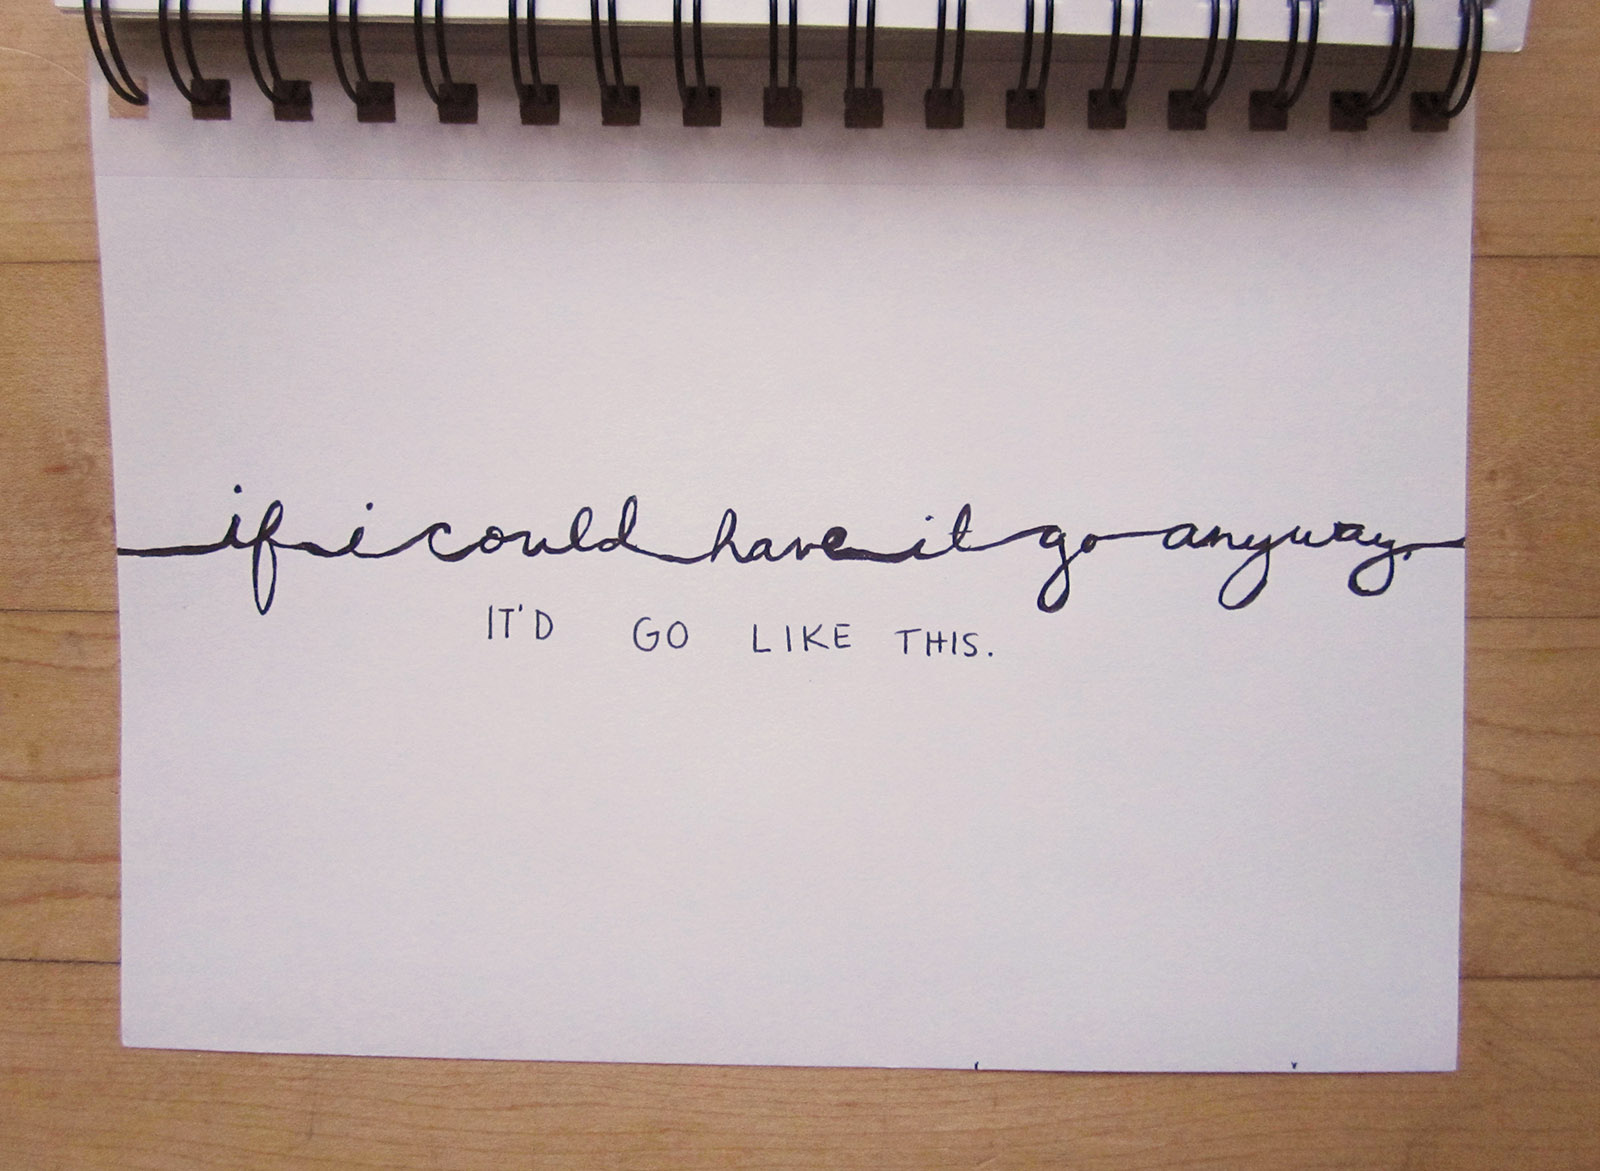 if i could have it go anyway,
IT'D GO LIKE THIS.